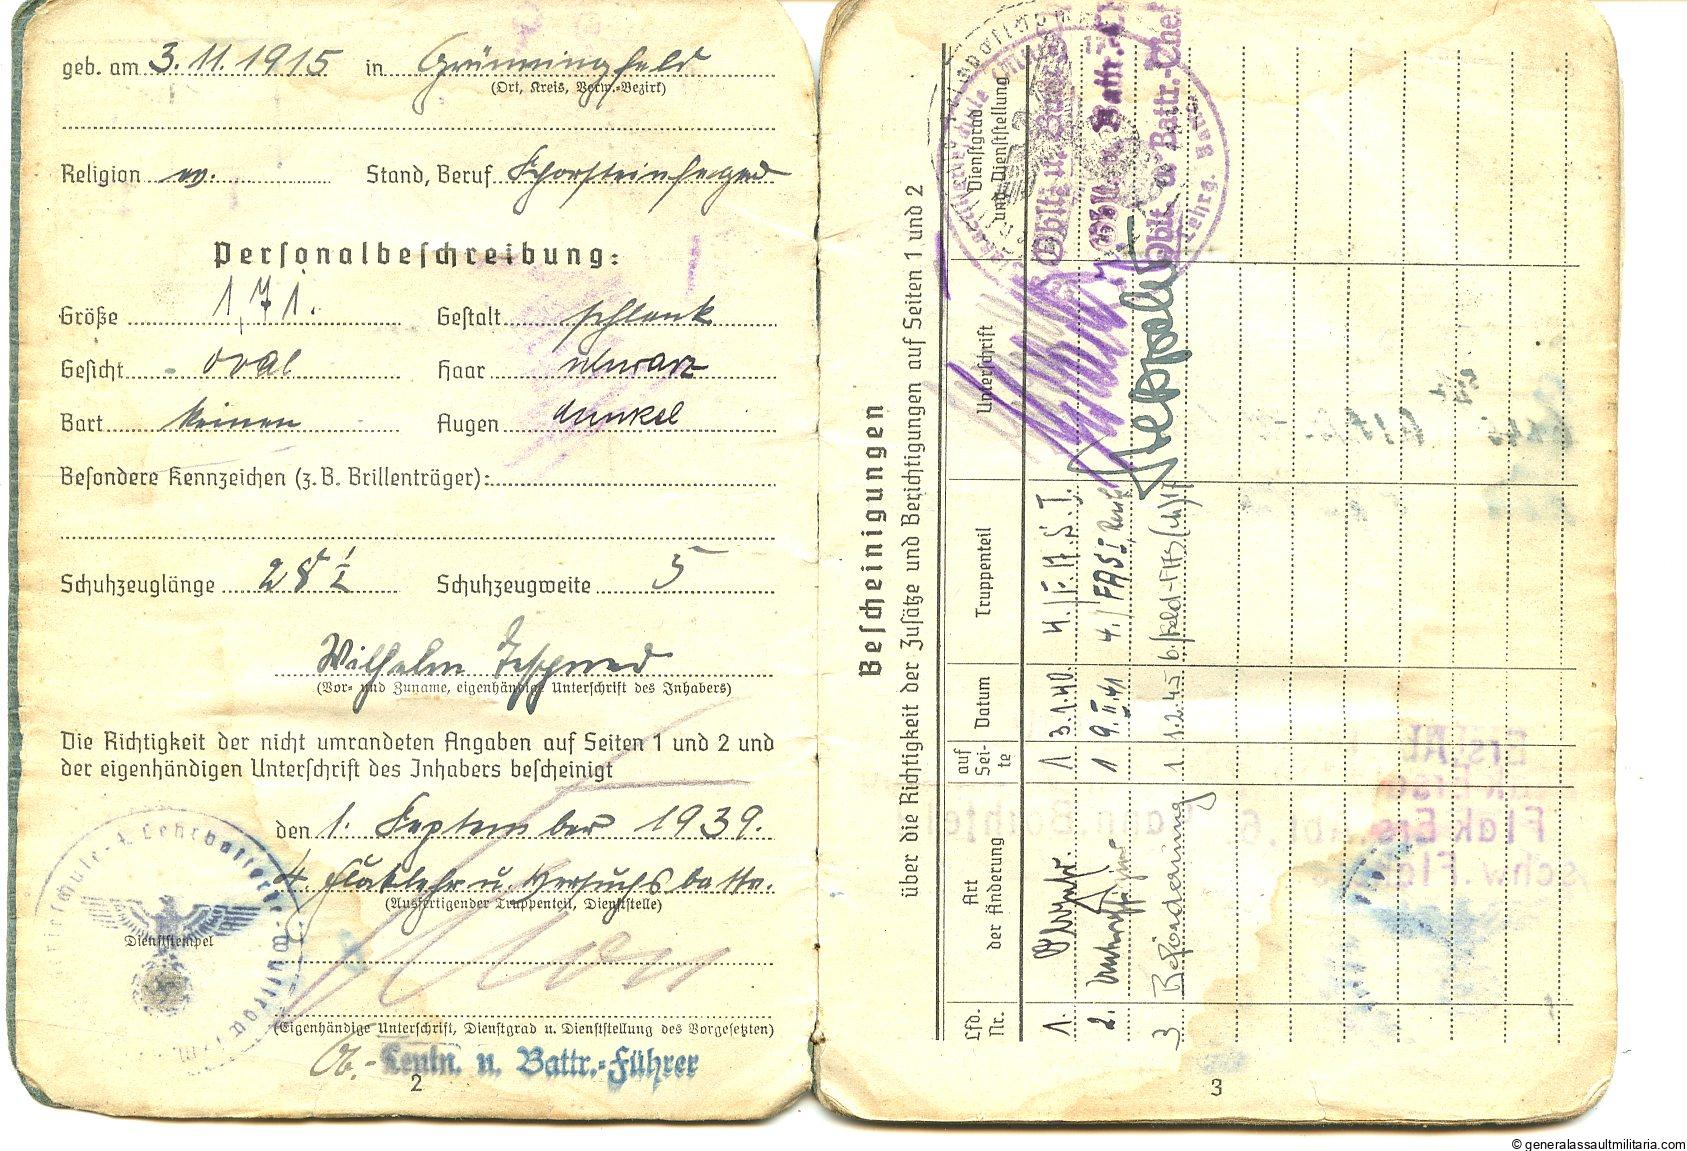 geb. am 3. 11. 1915 in
(Ort, Kreis, Verw.-Bezirk)
Religion ev. Stand, Beruf Schornsteinfeger
Personalbeschreibung:
Größe 1,71. Gestalt schlank
Gesicht oval Haar schwarz
Bart keinen Augen dunkel
Besondere Kennzeichen (z. B. Brillenträger):
Schuhzeuglänge 28 ½ Schuhzeugweite 5
Wilhelm
(Vor- und Zuname, eigenhändige Unterschrift des Inhabers)
Die Richtigkeit der nicht umrandeten Angaben auf Seiten 1 und 2 und
der eigenhändigen Unterschrift des Inhabers bescheinigt
den 1. September 1939.
4. Flaklehr u. Versuchsbattr.
(Ausfertigender Truppenteil, Dienststelle)
Dienststempel
(Eigenhändige Unterschrift, Dienstgrad u. Dienststellung des Vorgesetzten)
Ob.-Leutn. u. Battr.-Führer
2
Bescheinigungen
über die Richtigkeit der Zusätze und Berichtigungen auf Seiten 1 und 2
Lfd. Nr. Art der Änderung auf Seite Datum Truppenteil Unterschrift Dienstgrad und Dienststellung
1. 1 3.1.40 Oblt. u. Battr.
2. 1 9.II.41 Oblt. u. Battr.
3 Beförderung 1 1.2.45 Oblt. u. Battr.-Chef
3
© generalassaultmilitaria.com